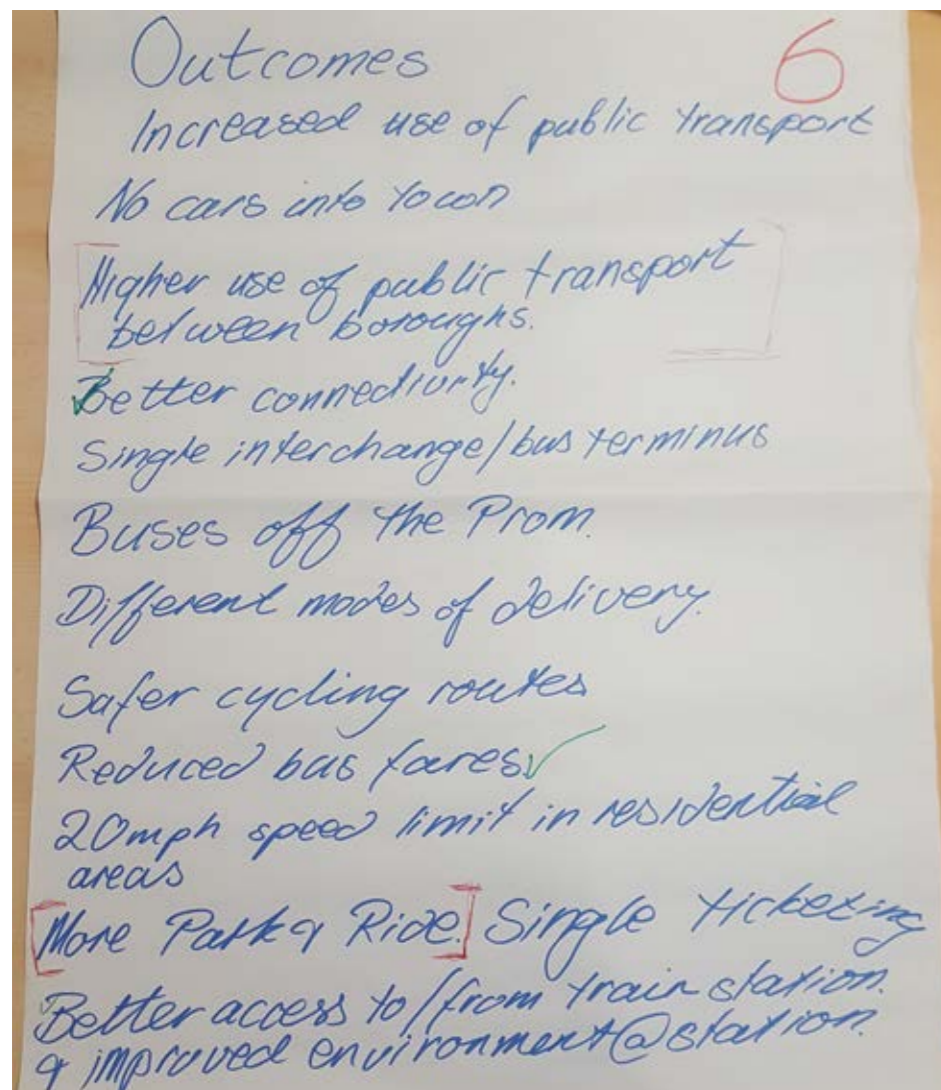 Outcomes 6
Increased use of public transport
No cars into town
Higher use of public transport
between boroughs.
Better connectivity.
Single interchange/bus terminus
Buses off the Prom.
Different modes of delivery.
Safer cycling routes
Reduced bus fares
20mph speed limit in residential
areas
More Park & Ride. Single ticketing
Better access to/from train station.
& improved environment@station.